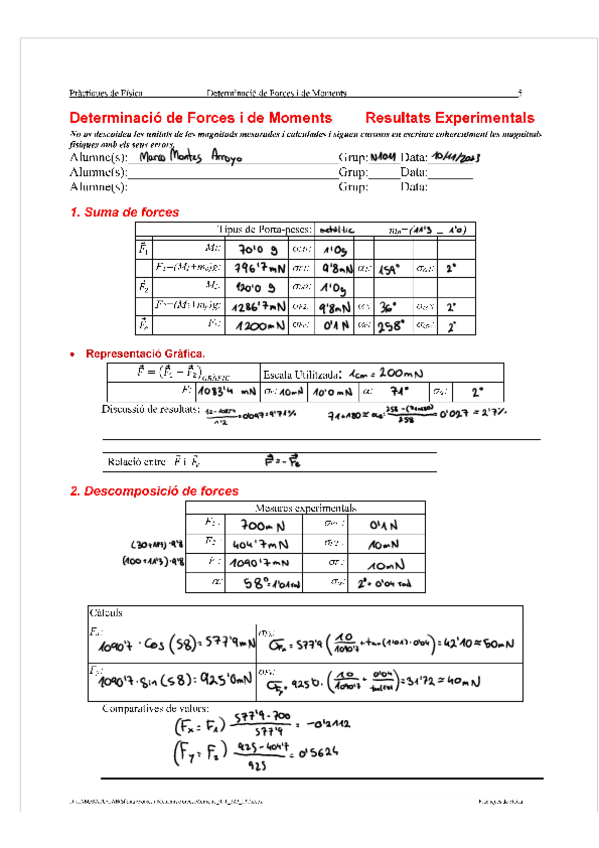 Pràctiques de Física Determinació de Forces i de Moments 5
Determinació de Forces i de Moments Resultats Experimentals
No us descuideu les unitats de les magnituds mesurades i calculades i sigueu curosos en escriure coherentment les magnituds
físiques amb els seus errors.
Alumne(s): Marco Montes Arroyo Grup: N104 Data: 10/11/2023
Alumne(s): Grup: Data:
Alumne(s): Grup: Data:
1. Suma de forces
Tipus de Porta-peses: metàl·lic
F₁ M₁: 70'0 g 1'0g
F₁=(M₁+m₀)g: 796'7mN 9'8mN 159° 2°
F₂ M₂: 120'0 g 1'0g
F₂=(M₂+m₀)g: 1286'7mN 9'8mN 36° 2°
1200mN 0'1 N 258° 2°
• Representació Gràfica.
GRÀFIC Escala Utilitzada: 1cm = 200mN
F: 1083'4 mN 10mN 10'0 mN α: 71° 2°
Discussió de resultats: = 0'097=9'71% = 0'027 = 2'7%
Relació entre F i
2. Descomposició de forces
Mesures experimentals
F₁: 700mN 0'1 N
(30+11'3)·9'8 F₂: 404'7mN 10mN
(100+11'3)·9'8 F: 1090'7mN 10mN
α: 58°=1'01rad 2°=0'04 rad
Càlculs
1090'7 · Cos (58)= 577'9mN = 577'9 (10/1090'7 + tan(1'01)·0'04)=42'10≈50mN
1090'7·Sin (58)= 925'0mN = 31'72≈40mN
Comparatives de valors:
(Fx = F₁) 577'9-700/577'9 = -0'2112
(Fy = F₂) 925-404'7/925 = 0'5624